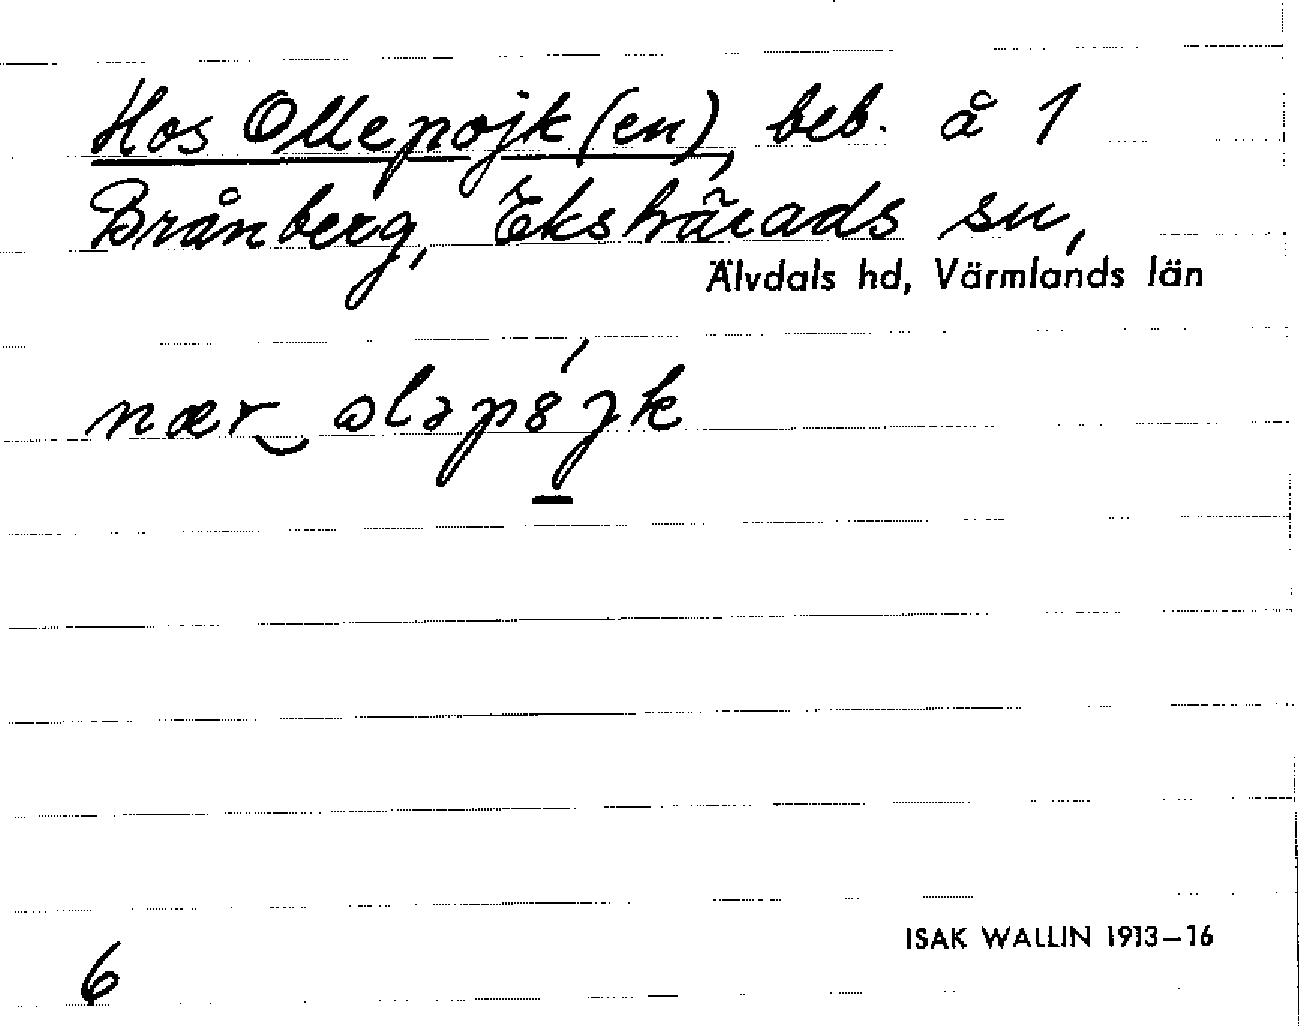 Hos Ollepojk(en), beb. å 1
Brånberg, Ekshärads sn,
Älvdals hd, Värmlands län
nær‿ ɷləpójk
6
ISAK WALLIN 1913–16